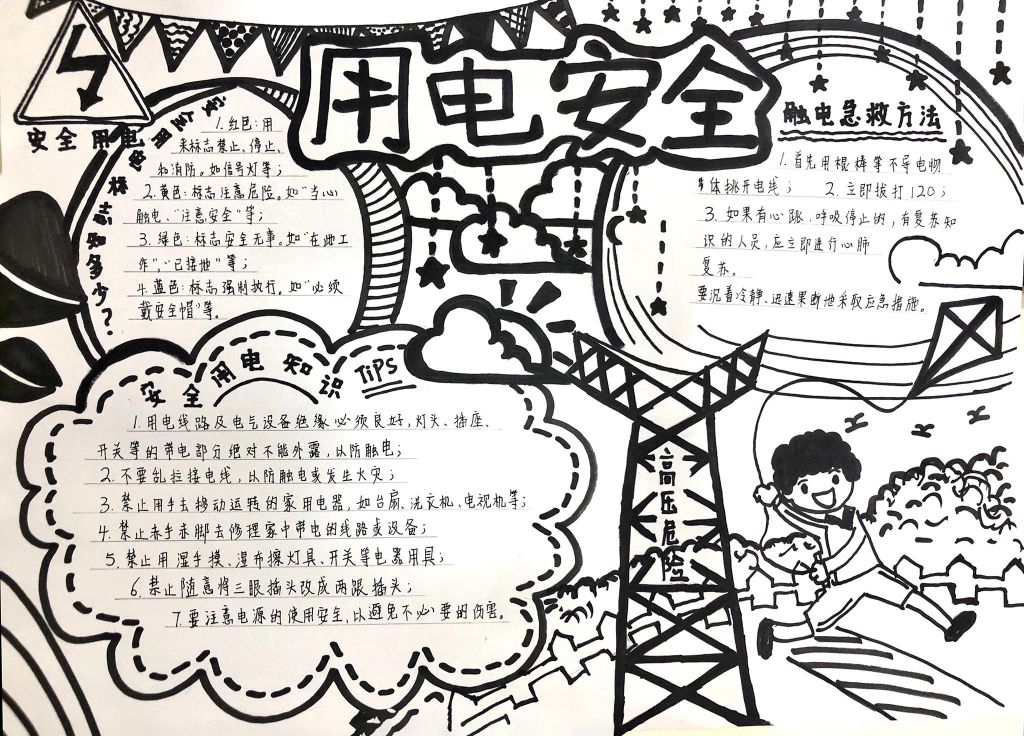 用电安全
安全用电
安全用电标志知多少?
1.红色:用
来标志禁止、停止、
和消防。如信号灯等;
2.黄色:标志注意危险。如"当心
触电、"注意安全"等;
3.绿色:标志安全无事。如"在此工
作","已接地"等;
4.蓝色:标志强制执行。如"必须
戴安全帽"等。
触电急救方法
1.首先用棍棒等不导电物
体挑开电线; 2.立即拔打120;
3.如果有心跳、呼吸停止的,有复苏知
识的人员,应立即进行心肺
复苏。
要沉着冷静、迅速果断地采取应急措施。
安全用电知识 TiPS
1.用电线路及电气设备绝缘必须良好,灯头、插座、
开关等的带电部分绝对不能外露,以防触电;
2.不要乱拉接电线,以防触电或发生火灾;
3.禁止用手去移动运转的家用电器,如台扇、洗衣机、电视机等;
4.禁止赤手赤脚去修理家中带电的线路或设备;
5.禁止用湿手摸、湿布擦灯具、开关等电器用具;
6.禁止随意将三眼插头改成两跟插头;
7.要注意电源的使用安全,以避免不必要的伤害。
高压危险